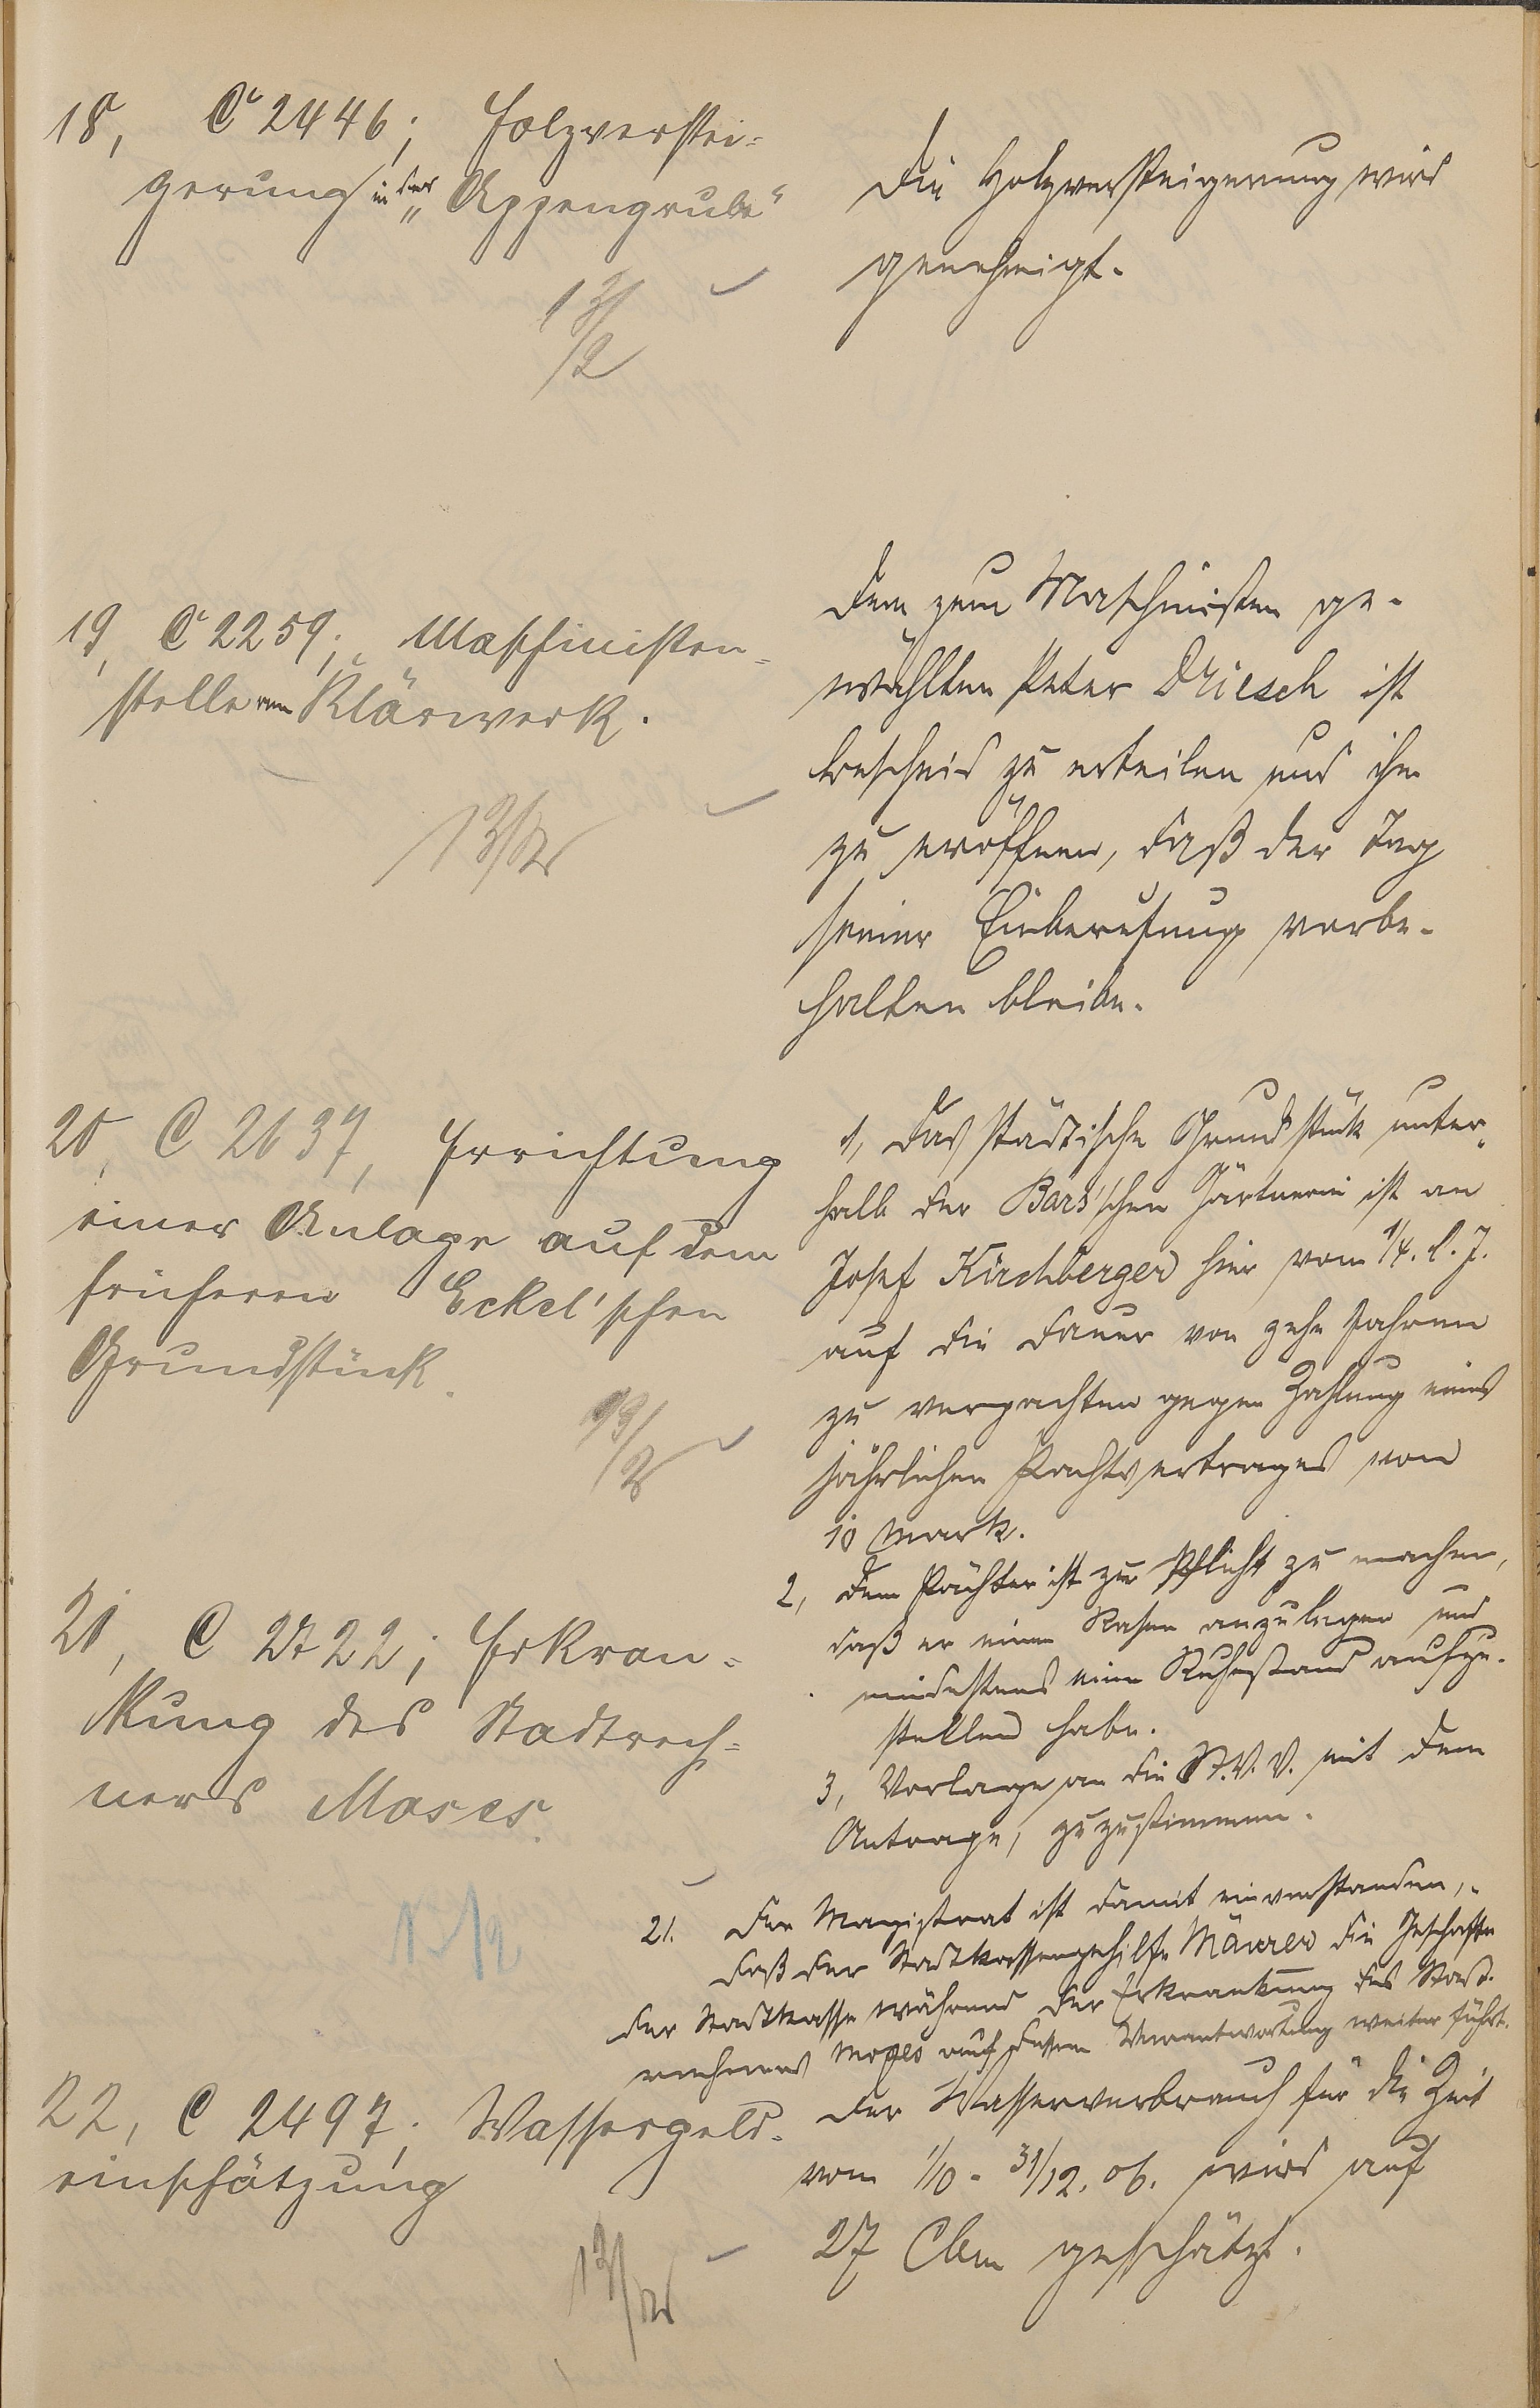 18, C 2446; Holzverstei-
gerung in der „Appengrube"
13/2
Die Holzversteigerung wird
genehmigt.
19, C 2259; Maschinisten-
stelle am Klärwerk.
13/2
Dem zum Maschinisten ge-
wählten Peter Driesch ist
Bescheid zu erteilen und ihm
zu eröffnen, daß der Tag
seiner Einberufung vorbe-
halten bleibe.
20, C 2637, Errichtung
einer Anlage auf dem
früheren Eckel'schen
Grundstück.
13/2
1, Das städtische Grundstück unter-
halb der Bars'schen Gärtnerei ist an
Josef Kirchberger hier vom 1/4. l. J.
auf die Dauer von zehn Jahren
zu verpachten gegen Zahlung eines
jährlichen Pachtvertrages von
10 Mark.
2, Dem Pächter ist zur Pflicht zu machen,
daß er einen Rasen anzulegen und
mindestens eine Ruhestand aufzu-
stellen habe.
3, Vorlage an die St. V. V. mit dem
Antrage, zuzustimmen.
21, C 2722; Erkran-
kung des Stadtrech-
ners Moses.
21. Der Magistrat ist damit einverstanden,
daß der Stadtkassengehilfe Maurer die Geschäfte
der Stadtkasse während der Erkrankung des Stadt-
rechners Moses auf dessen Verantwortung weiter führt.
22, C 2497; Wassergeld-
einschätzung
13/2
Der Wasserverbrauch für die Zeit
vom 1/10 - 31/12. 06. wird auf
27 Cbm geschätzt.